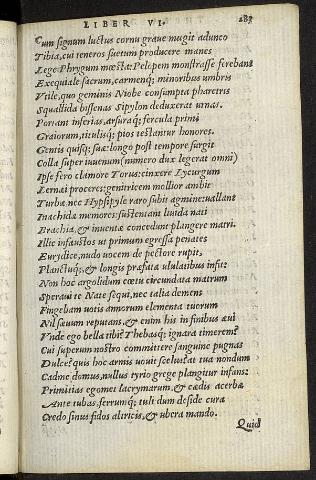 LIBER VI. 283
Cum signum luctus cornu graue mugit adunco
Tibia, cui teneros suetum producere manes
Lege Phrygum mœsta: Pelopem monstrasse ferebant
Exequiale sacrum, carmenq; minoribus umbris
Vtile, quo geminis Niobe consumpta pharetris
Squallida bissenas Sipylon deduxerat urnas.
Portant inferias, arsuraq; fercula primi
Graiorum, titulisq; pios testantur honores.
Gentis quisq; suæ: longo post tempore surgit
Colla super iuuenum (numero dux legerat omni)
Ipse fero clamore Torus: cinxere Lycurgum
Lernæi proceres: genitricem mollior ambit
Turba: nec Hypsipyle raro subit agmine: uallant
Inachidæ memores: sustentant liuida nati
Brachia, & inuentæ concedunt plangere matri.
Illic infaustos ut primum egressa penates
Eurydice, nudo uocem de pectore rupit,
Planctuq;, & longis præfata ululatibus infit:
Non hoc argolidum cœtu circundata matrum
Speraui te Nate sequi, nec talia demens
Fingebam uotis annorum elementa tuorum
Nil sæuum reputans, & enim his in finibus æui
Vnde ego bella tibi? Thebasq; ignara timerem?
Cui superum nostro committere sanguine pugnas
Dulce? quis hoc armis uouit scelus? at tua nondum
Cadme domus, nullus tyrio grege plangitur infans:
Primitias egomet lacrymarum, & cædis acerbæ
Ante tubas, ferrumq; tuli dum deside cura
Credo sinus fidos altricis, & ubera mando.
Quid